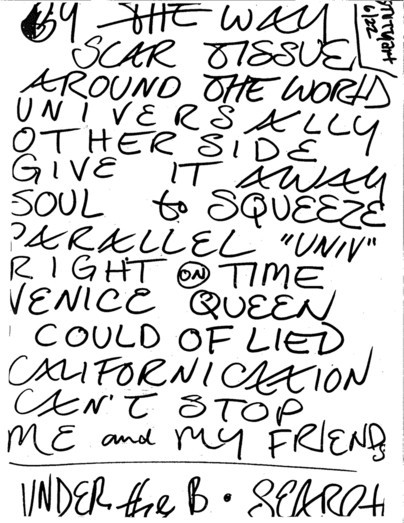 BY THE WAY
6/22
SCAR TISSUE
AROUND THE WORLD
UNIVERSALLY
OTHERSIDE
GIVE IT AWAY
SOUL to SQUEEZE
PARALLEL "UNIV"
RIGHT ON TIME
VENICE QUEEN
I COULD OF LIED
CALIFORNICATION
CAN'T STOP
ME and MY FRIENDS
UNDER the B • SEARCH